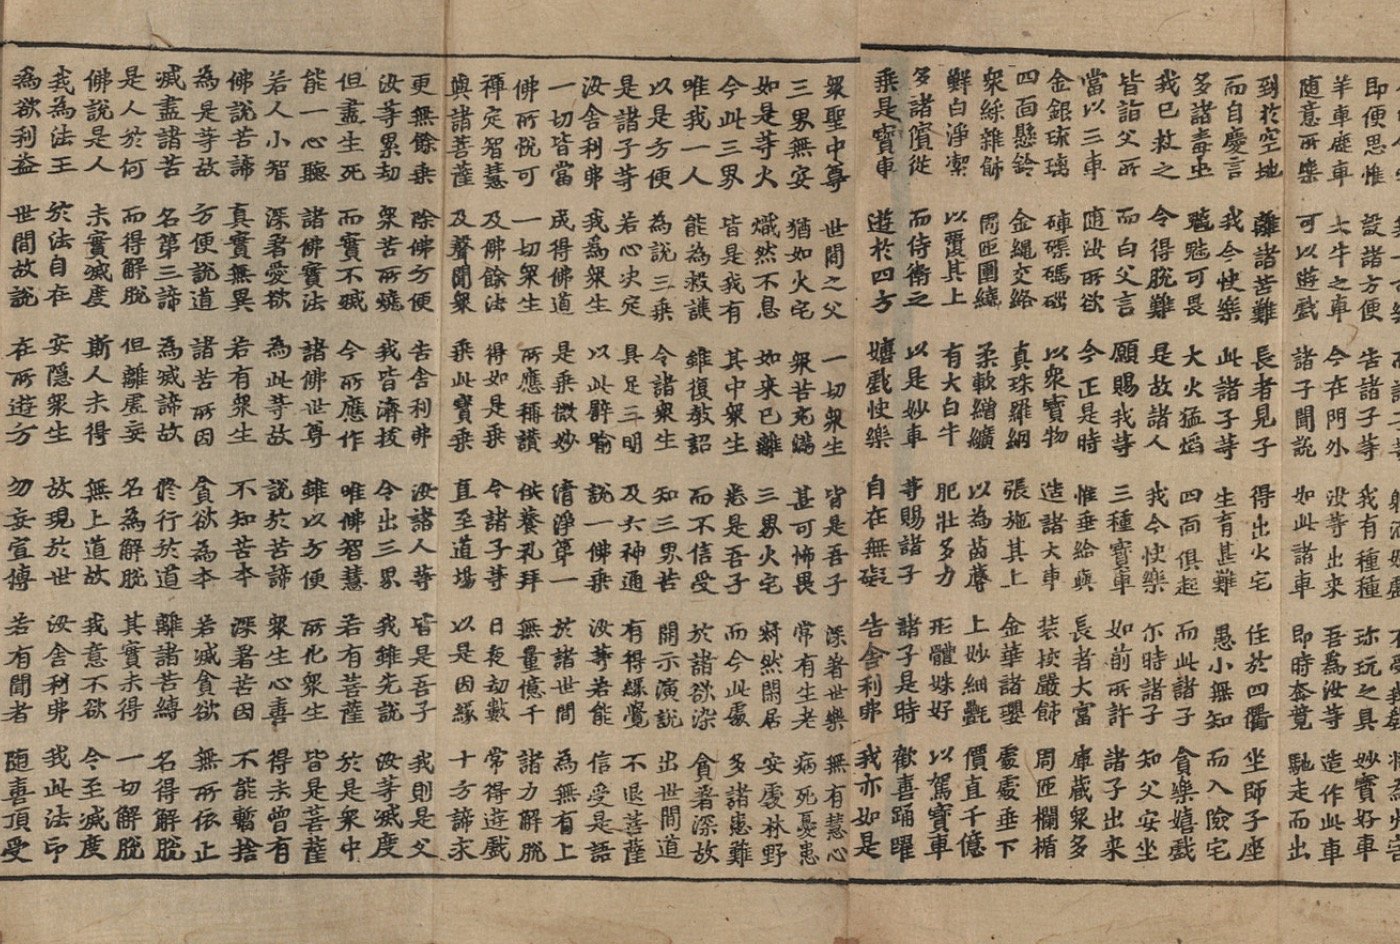 即便思惟 設諸方便 告諸子等 我有種種 珎玩之具 妙寶好車
羊車鹿車 大牛之車 今在門外 汝等出來 吾為汝等 造作此車
隨意所樂 可以遊戲 諸子聞說 如此諸車 即時奔競 馳走而出
到於空地 離諸苦難 長者見子 得出火宅 住於四衢 坐師子座
而自慶言 我今快樂 此諸子等 生育甚難 愚小無知 而入險宅
多諸毒虫 魑魅可畏 大火猛焰 四面俱起 而此諸子 貪樂嬉戲
我已救之 令得脫難 是故諸人 我今快樂 尒時諸子 知父安坐
皆詣父所 而白父言 願賜我等 三種寶車 如前所許 諸子出来
當以三車 隨汝所欲 今正是時 惟垂給與 長者大富 庫藏眾多
金銀琉璃 硨磲碼碯 以眾寶物 造諸大車 裝挍嚴飾 周匝欄楯
四面懸鈴 金繩交絡 真珠羅網 張施其上 金華諸瓔 處處垂下
眾綵雜飾 周匝圍繞 柔軟繒纊 以為茵蓐 上妙細㲲 價直千億
鮮白淨潔 以覆其上 有大白牛 肥壯多力 形體姝好 以駕寶車
多諸儐從 而侍衛之 以是妙車 等賜諸子 諸子是時 歡喜踊躍
乘是寶車 遊於四方 嬉戲快樂 自在無礙 告舍利弗 我亦如是
眾聖中尊 世間之父 一切眾生 皆是吾子 深著世樂 無有慧心
三界無安 猶如火宅 眾苦充滿 甚可怖畏 常有生老 病死憂患
如是等火 熾然不息 如來已離 三界火宅 寂然閑居 安處林野
今此三界 皆是我有 其中眾生 悉是吾子 而今此處 多諸患難
唯我一人 能為救護 雖復教詔 而不信受 於諸欲染 貪著深故
以是方便 為說三乘 令諸眾生 知三界苦 開示演說 出世間道
是諸子等 若心決定 具足三明 及六神通 有得緣覺 不退菩薩
汝舍利弗 我為眾生 以此譬喻 說一佛乘 汝等若能 信受是語
一切皆當 成得佛道 是乘微妙 清淨第一 於諸世間 為無有上
佛所悅可 一切眾生 所應稱讚 供養礼拜 無量億千 諸力解脫
禪定智慧 及佛餘法 得如是乘 令諸子等 日夜劫數 常得遊戲
與諸菩薩 及聲聞眾 乘此寶乘 直至道場 以是因緣 十方諦求
更無餘乘 除佛方便 告舍利弗 汝諸人等 皆是吾子 我則是父
汝等累劫 眾苦所燒 我皆濟拔 令出三界 我雖先說 汝等滅度
但盡生死 而實不滅 今所應作 唯佛智慧 若有菩薩 於是眾中
能一心聽 諸佛實法 諸佛世尊 雖以方便 所化眾生 皆是菩薩
若人小智 深著愛欲 為此等故 說於苦諦 眾生心喜 得未曾有
佛說苦諦 真實無異 若有眾生 不知苦本 深著苦因 不能暫捨
為是等故 方便說道 諸苦所因 貪欲為本 若滅貪欲 無所依止
滅盡諸苦 名第三諦 為滅諦故 修行於道 離諸苦縛 名得解脫
是人於何 而得解脫 但離虛妄 名為解脫 其實未得 一切解脫
佛說是人 未實滅度 斯人未得 無上道故 我意不欲 令至滅度
我為法王 於法自在 安隱眾生 故現於世 汝舍利弗 我此法印
為欲利益 世間故說 在所遊方 勿妄宣傳 若有聞者 隨喜頂受